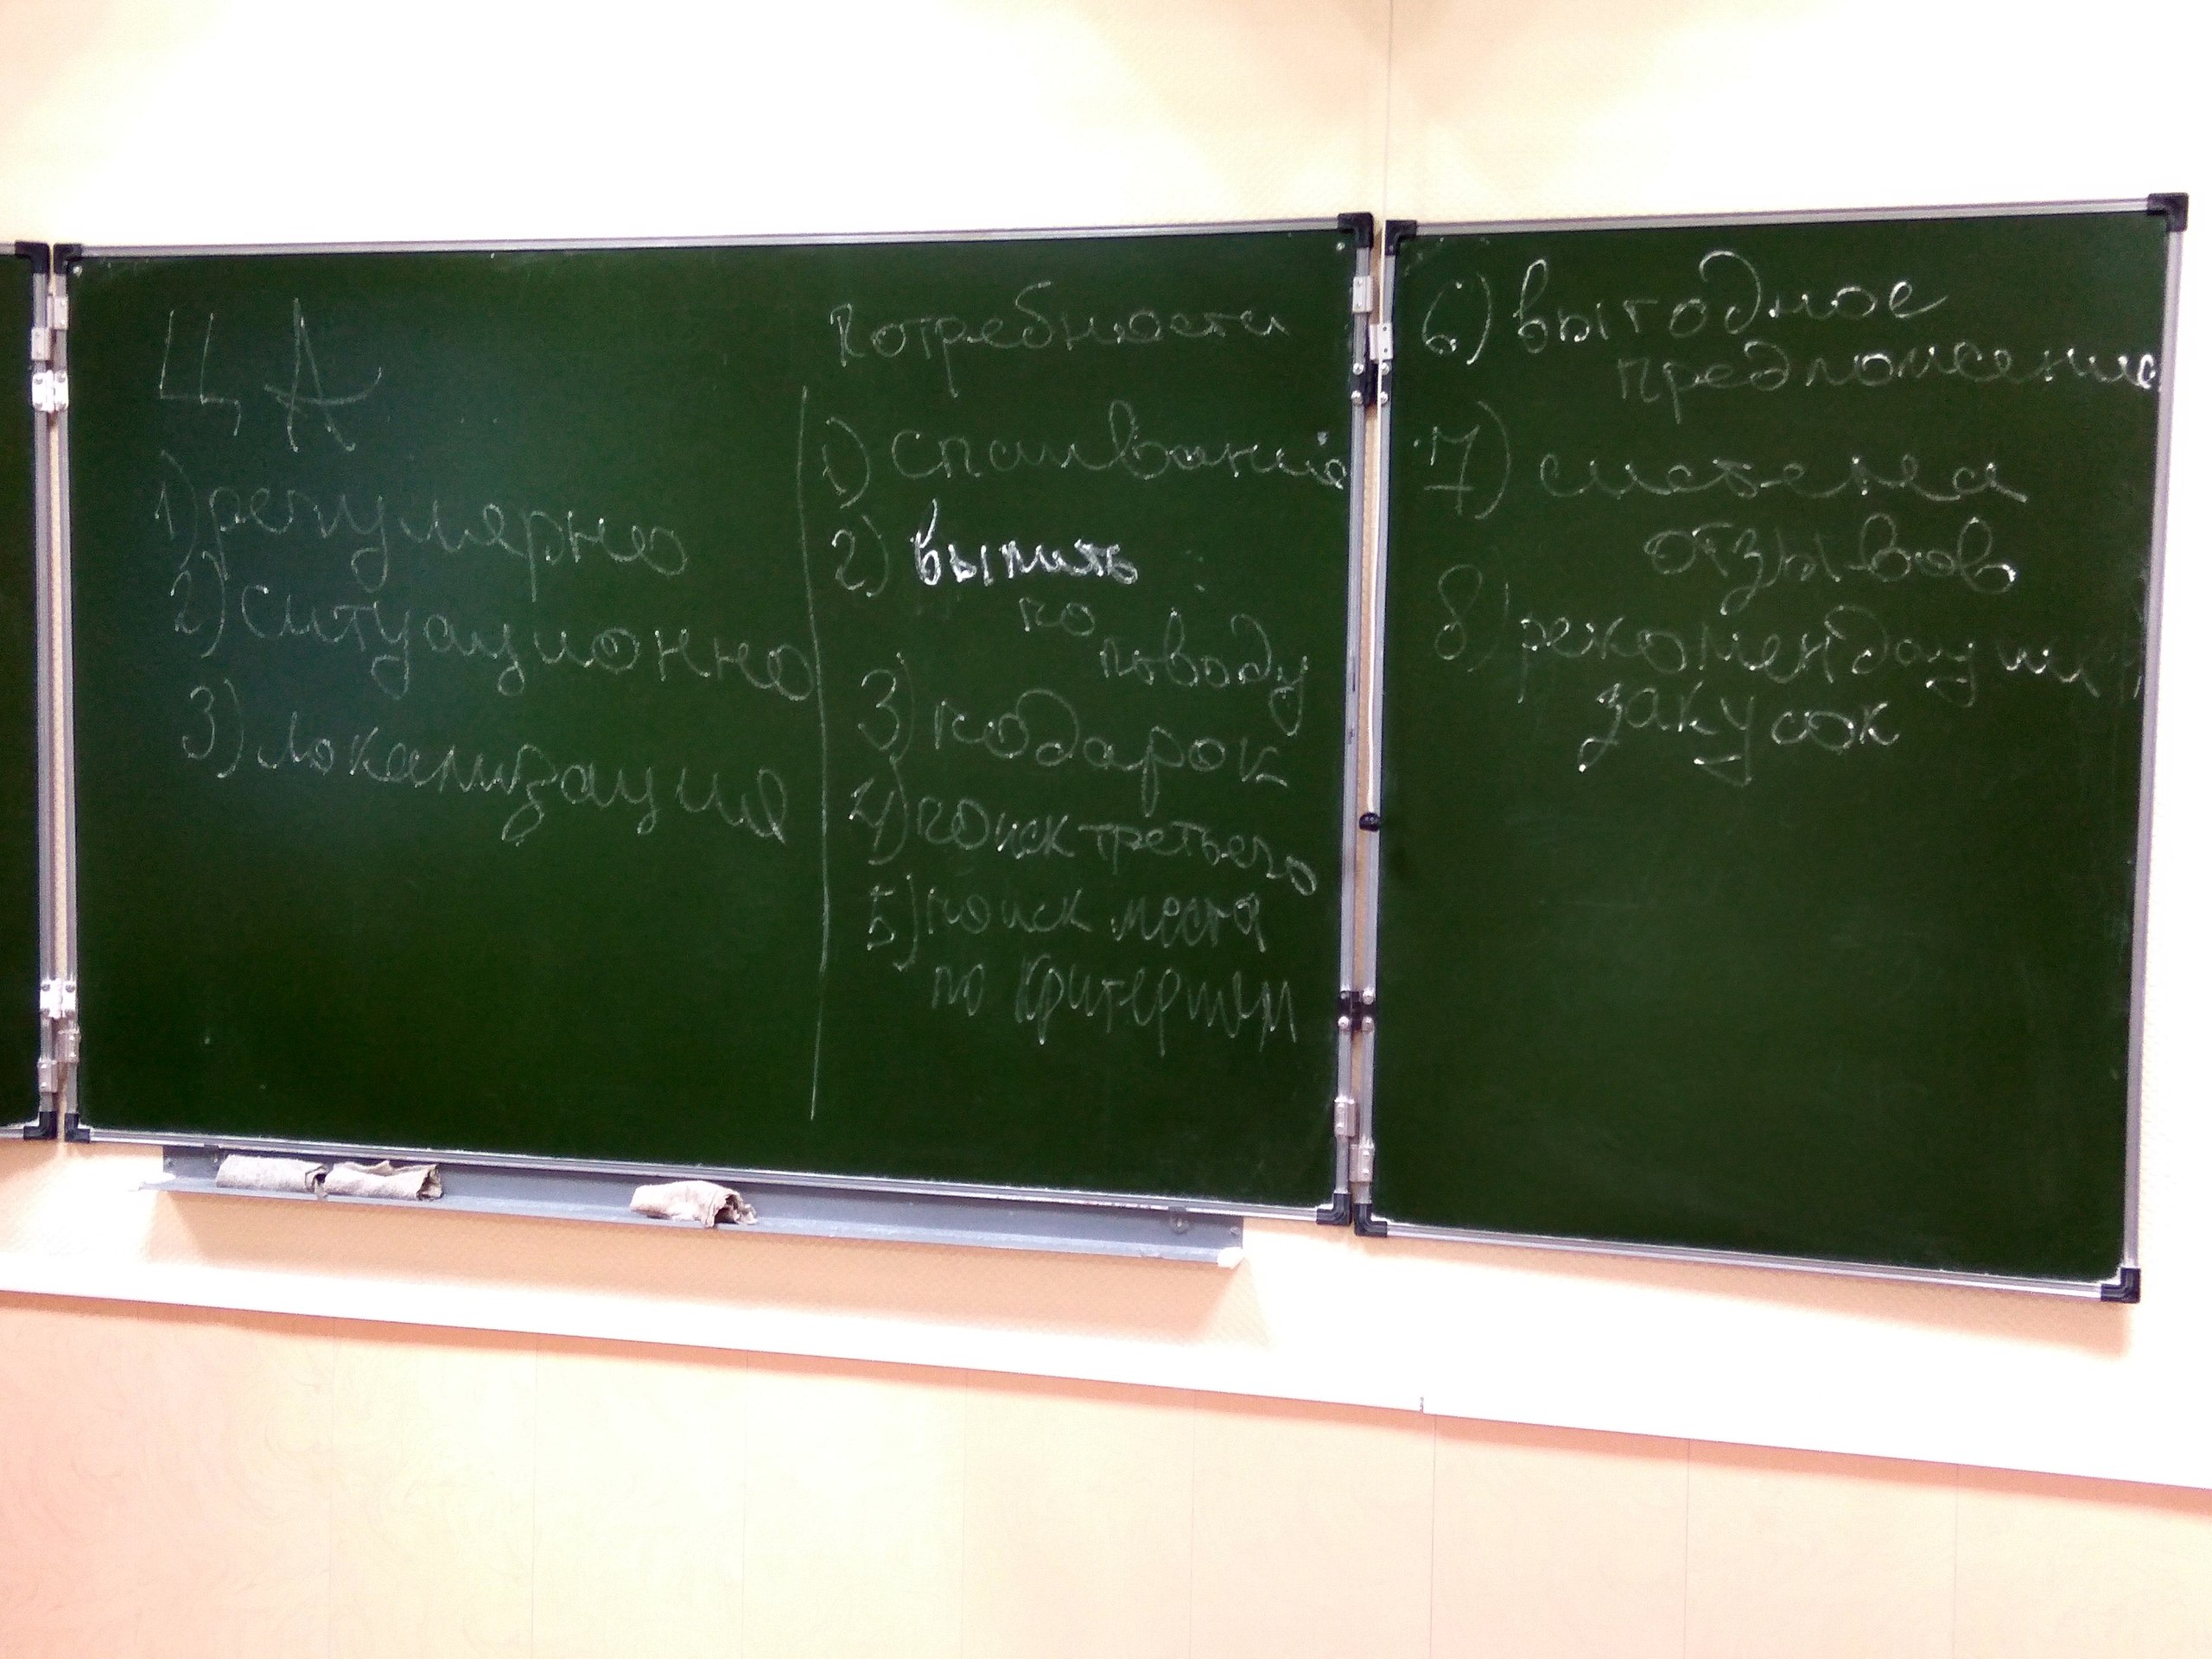 ЦА
1) регулярно
2) ситуационно
3) локализация
Потребности
1) спаивание
2) выпить
по
поводу
3) подарок
4) поиск третьего
5) поиск места
по критериям
6) выгодное
предложение
7) система
отзывов
8) рекомендации
закусок